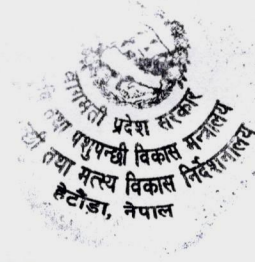 बागमती प्रदेश सरकार
तथा पशुपन्छी विकास मन्त्रालय
तथा मत्स्य विकास निर्देशनालय
हेटौंडा, नेपाल